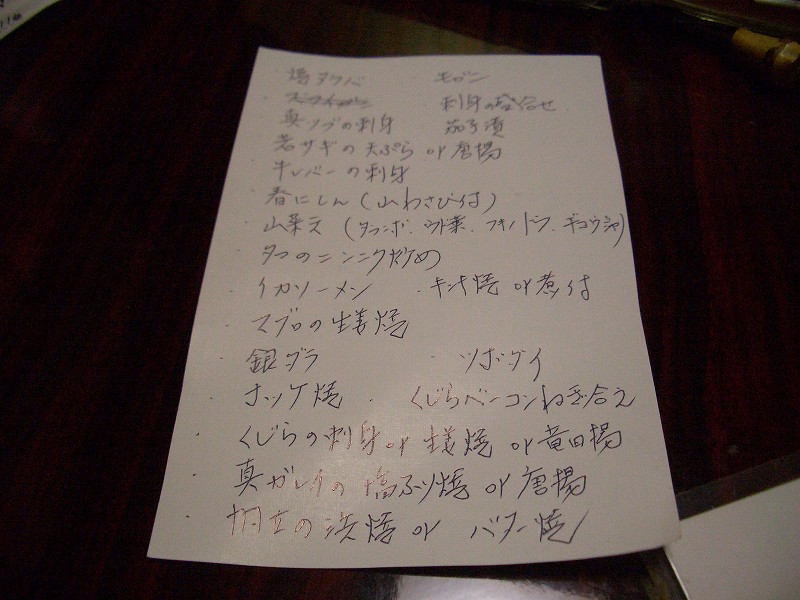 キヌン
刺身の盛合せ
真ツブの刺身 茄子漬
若サギの天ぷら or 唐揚
牛レバーの刺身
春にしん(山わさび付)
山菜天(タランボ.ウド葉.フキノトウ.ギョウジャ)
タコのニンニク炒め
イカソーメン ・キンキ焼 or 煮付
マグロの生姜焼
銀ダラ ツボダイ
ホッケ焼 ・くじらベーコンねぎ合え
くじらの刺身 or 生姜焼 or 竜田揚
真ガレイの塩ふり焼 or 唐揚
帆立の浜焼 or バター焼